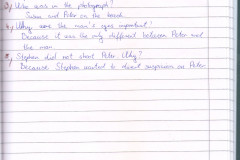 Who was in the photograph?
Julian and Peter on the board.
Why were the man's eyes important?
Because it was the only different between Peter and
the man.
Stephen did not shoot Peter. Why?
Because Stephen wanted to divert suspicion on Peter